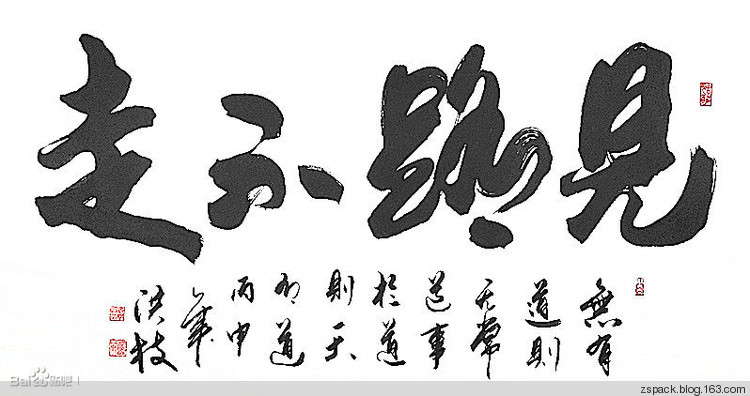 見路不走
無有
道則
常
道事
於道
則天
道
丙申
年
洪枝
Bai贴吧
zspack.blog.163.com